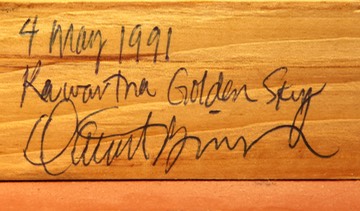 4 May 1991
Kawartha Golden Sky